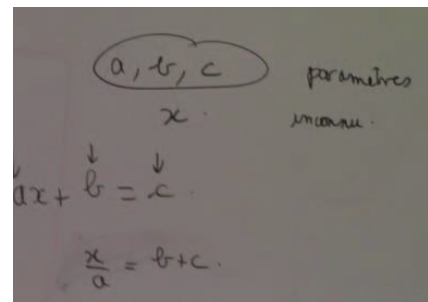 a, b, c parametres
x. inconnu.
↓ ↓ ↓
ax + b = c.
x/a = b+c.